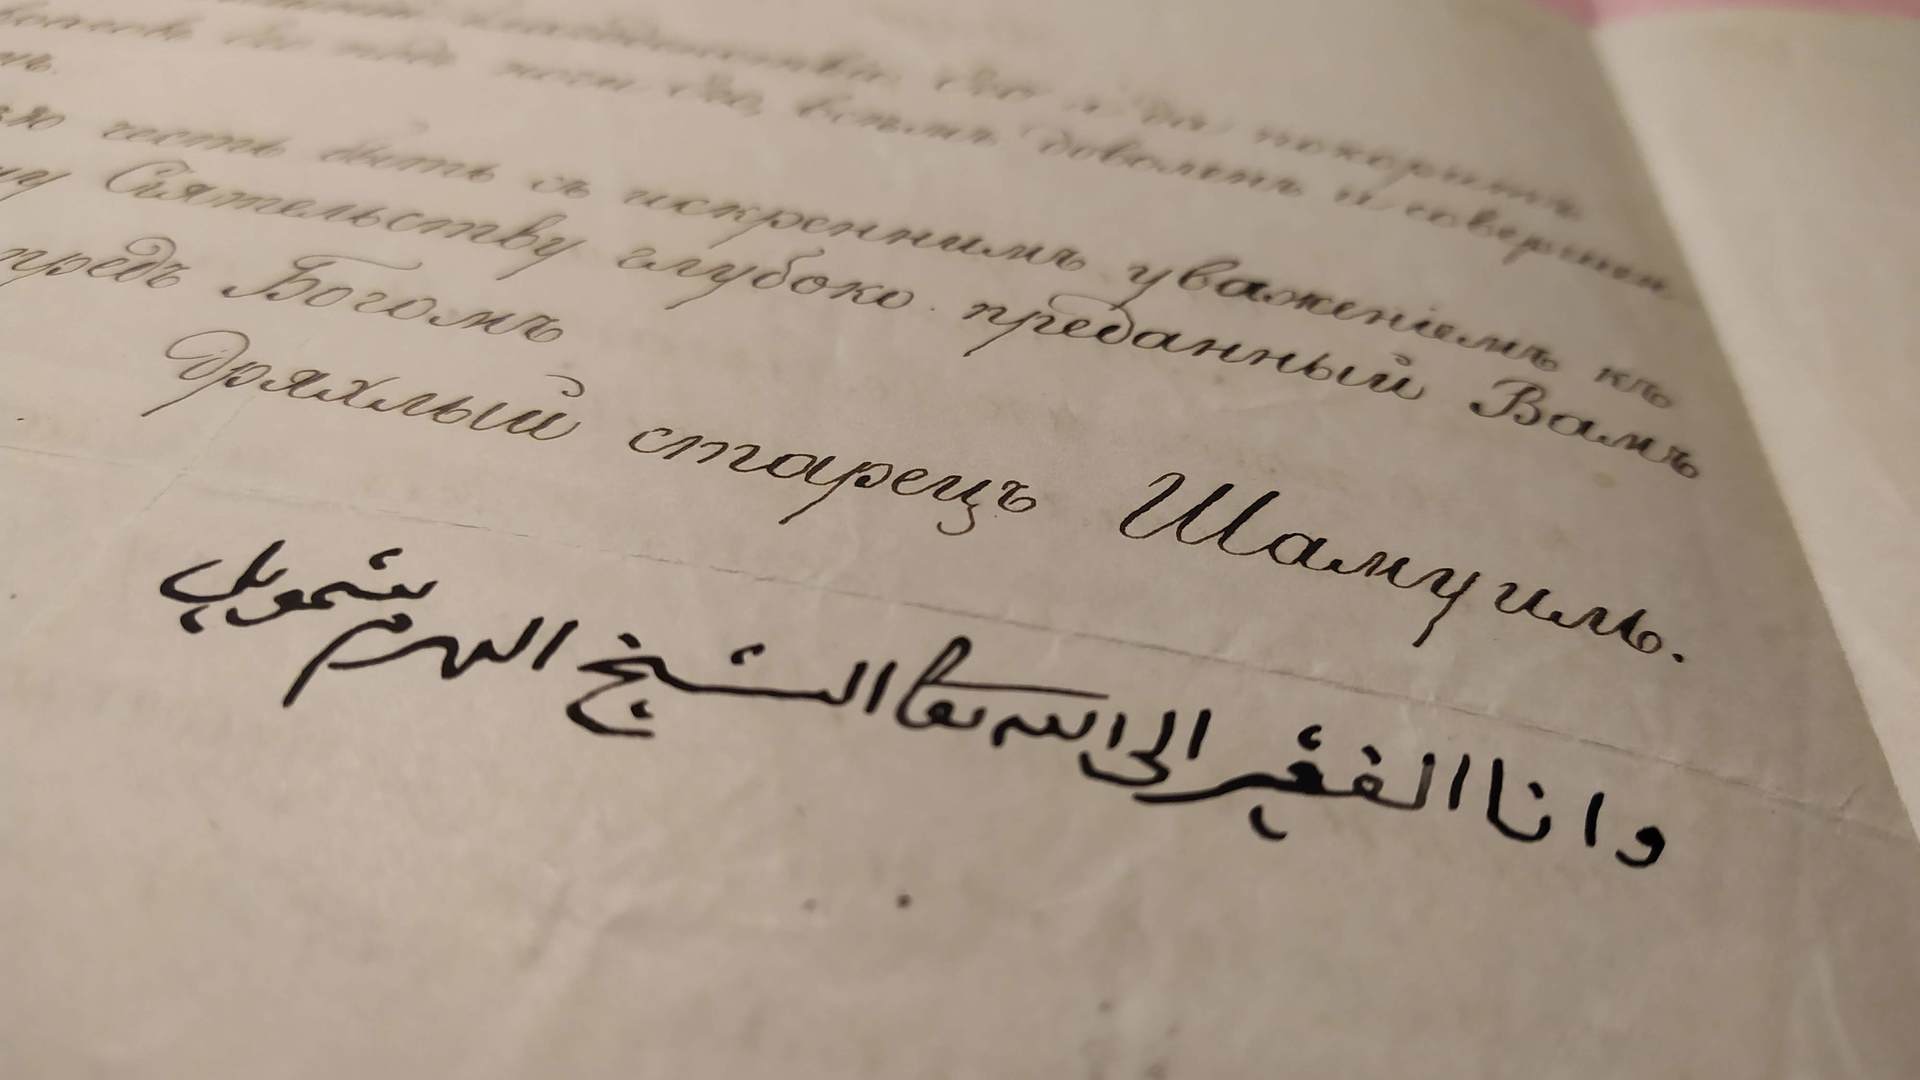 да покоритъ
подъ ноги Его, всѣмъ доволенъ и совершен
честь быть съ искреннимъ уваженіемъ къ
Сіятельству глубоко преданный Вамъ
предъ Богомъ
Дряхлый старецъ Шамуиль.
وانا الفقير الى الله تعا الشيخ الهرم شمويل